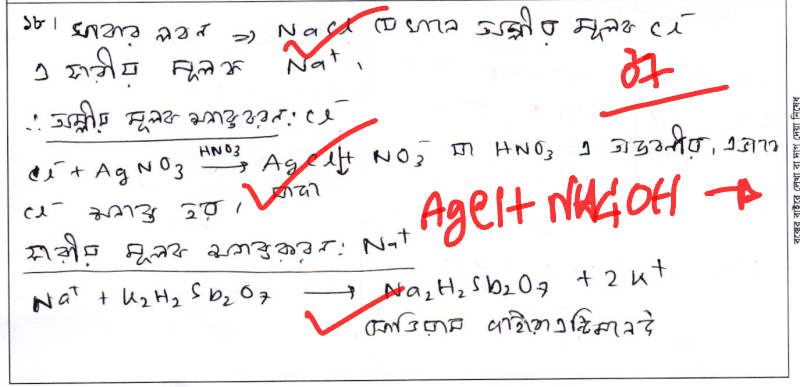 ১৮। খাবার লবন ⇒ NaCl যেখানে অম্লীয় মূলক Cl⁻
ও ক্ষারীয় মূলক Na⁺,
∴ অম্লীয় মূলক শনাক্তকরন: Cl⁻
Cl⁻ + AgNO3 HNO3→ AgCl↓ + NO3⁻ যা HNO3 এ অদ্রবনীয়, এভাবে
সাদা
Cl⁻ শনাক্ত হয়।
AgCl + NH4OH →
ক্ষারীয় মূলক শনাক্তকরন: Na⁺
Na⁺ + K2H2Sb2O7 → Na2H2Sb2O7 + 2K⁺
সোডিয়াম
বক্সের বাইরে লেখা বা দাগ দেয়া নিষেধ